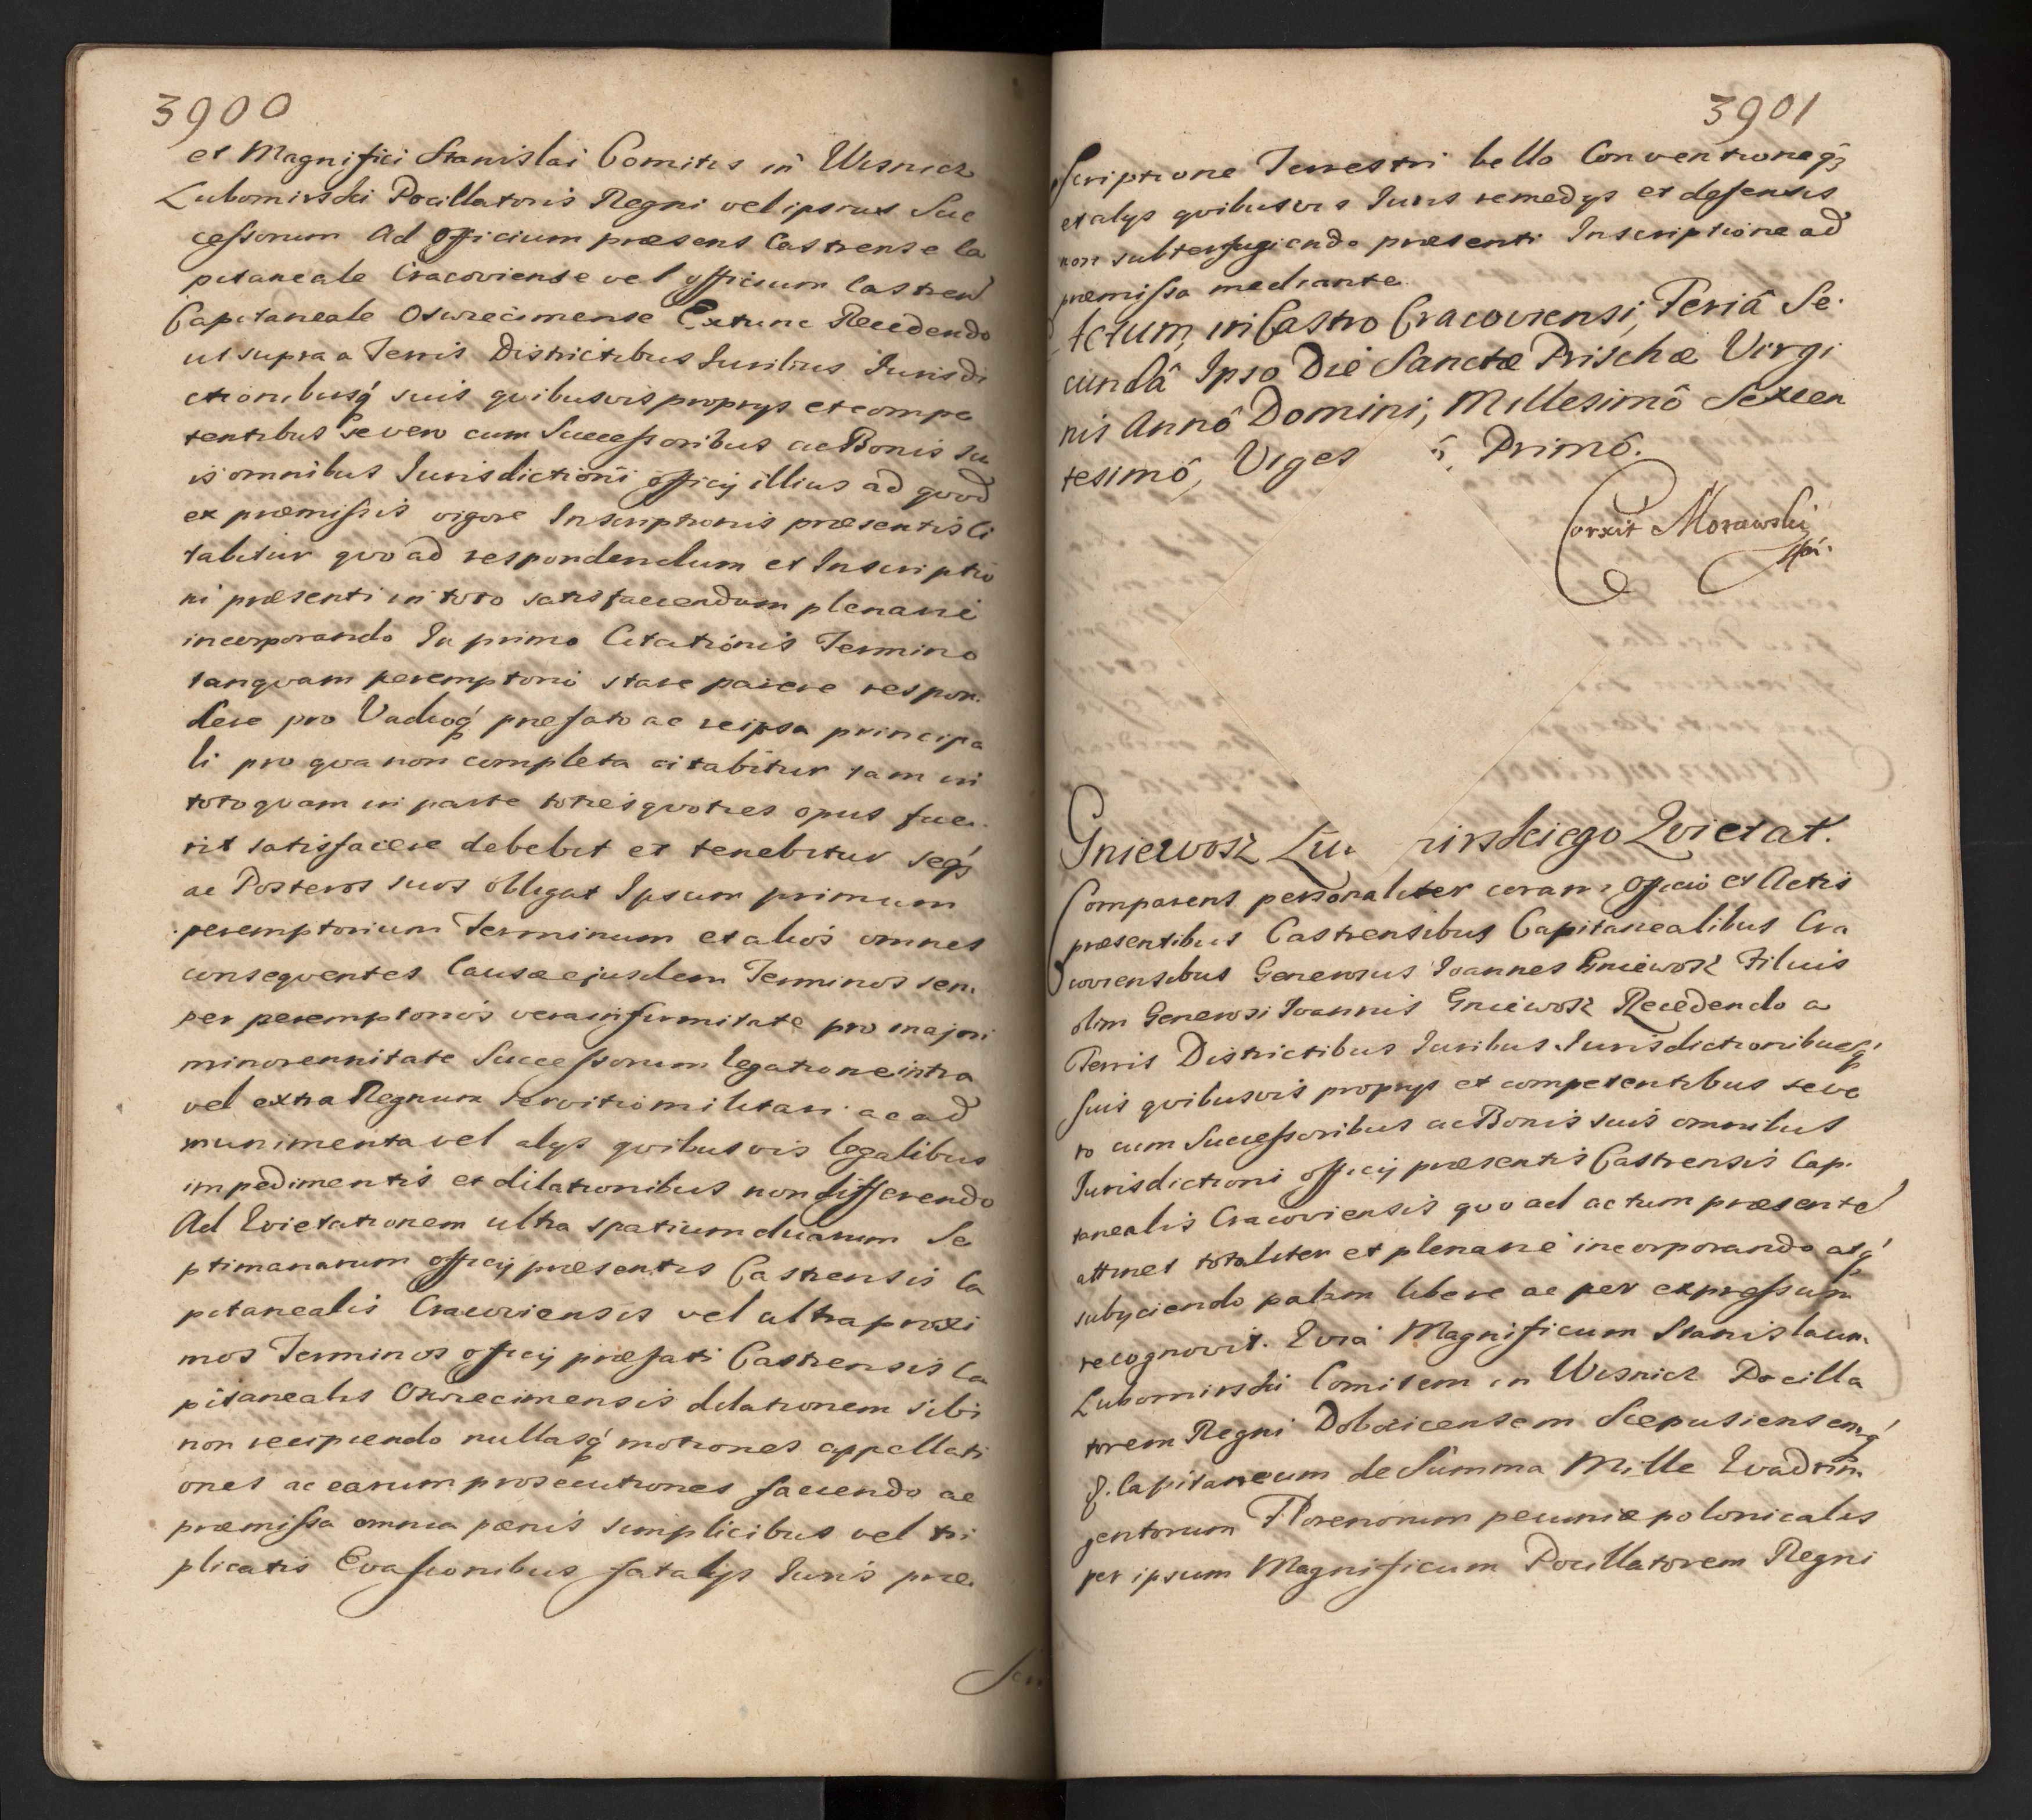 3900
et Magnifici Stanislai Comitis in Wisnicz
Lubomirski Pocillatoris Regni vel ipsius Suc
cessorum Ad Officium præsens Castrense Ca
pitaneale Cracoviense vel officium Castren
Capitaneale Oswiecimense Extunc Recedendo
ut supra a Terris Districtibus Iuribus Iurisdi
ctionibusq́ suis quibusvis proprys et compe
tentibus se vero cum Successoribus ac Bonis su
is omnibus Iurisdictioni officÿ illius ad quod
ex præmissis vigore Inscriptionis præsentis Ci
tabitur quo ad respondendum et Inscriptio
ni præsenti in toto satisfaciendum plenarie
incorporando In primo Citationis Termino
tanquam peremptorio stare parere respon.
dere pro Vadioq́ præfato ac reipsa principa
li pro qua non completa citabitur tam in
toto quam in parte toties quoties opus fue.
rit satisfacere debebit et tenebitur seq́
ac Posteros suos obligat Ipsum primum
peremptorium Terminum et alios omnes
consequentes Causæ ejusdem Terminos sem.
per peremptorios vera infirmitate pro majori
minorennitate Successorum legatione intra
vel extra Regnum servitio militari ac ad
munimenta vel alys quibusvis legalibus
impedimentis et dilationibus non differendo
Ad Quietationem ultra spatium duarum Se
ptimanarum officÿ præsentis Castrensis Ca
pitanealis Cracoviensis vel ultra proxi
mos Terminos officÿ præfati Castrensis Ca
pitanealis Oswiecimensis dilationem sibi
non recipiendo nullasq́ motiones appellati
ones ac earum prosecutiones faciendo ac
præmissa omnia pænis simplicibus vel tri
plicatis Evasionibus fatalÿs Iuris præ.
Scri
3901
scriptione Terrestri bello Conventioneq́
et alys quibusvis Iuris remedys et defensis
non subterfugiendo præsenti Inscriptione ad
præmissa mediante.
Actum in Castro Cracoviensi, Feriâ Se.
cundâ Ipso Die Sanctæ Prischæ Virgi
nis Annô Domini, Millesimô Sexcen
tesimô, Viges ô, Primô.
Corxit Morawski
mpr.
Gniewosz Lu rirskiego Quietat.
Comparens personaliter coram Officio et Actis
præsentibus Castrensibus Capitanealibus Cra
coviensibus Generosus Ioannes Gniewosz Filius
olim Generosi Ioannis Gniewosz Recedendo a
Terris Districtibus Iuribus Iurisdictionibusq́
suis quibusvis proprys et competentibus seve
ro cum Successoribus ac Bonis suis omnibus
Iurisdictioni officÿ præsentis Castrensis Capi
tanealis Cracoviensis quo ad actum præsente
attinet totaliter et plenarie incorporando atq́
subyciendo palam libere ac per expressum
recognovit. Quia Magnificum Stanislaum
Lubomirski Comitem in Wisnicz Pocilla
torem Regni Dobczicensem Scepusiensemq́
&. Capitaneum de Summa Mille Quadrin
gentorum Florenorum pecuniæ polonicalis
per ipsum Magnificum Pocillatorem Regni